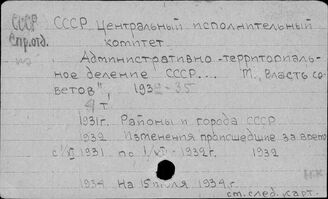 СССР
Спр.отд.
СССР Центральный исполнительный
комитет
Административно-территориаль-
ное деление СССР... М., "Власть со-
ветов", 1932-35
4 т.
1931г. Районы и города СССР
1932 Изменения происшедшие за время
с 1931 по 1932г. 1932
1934 На 15 июля 1934г.
см.след. карт.